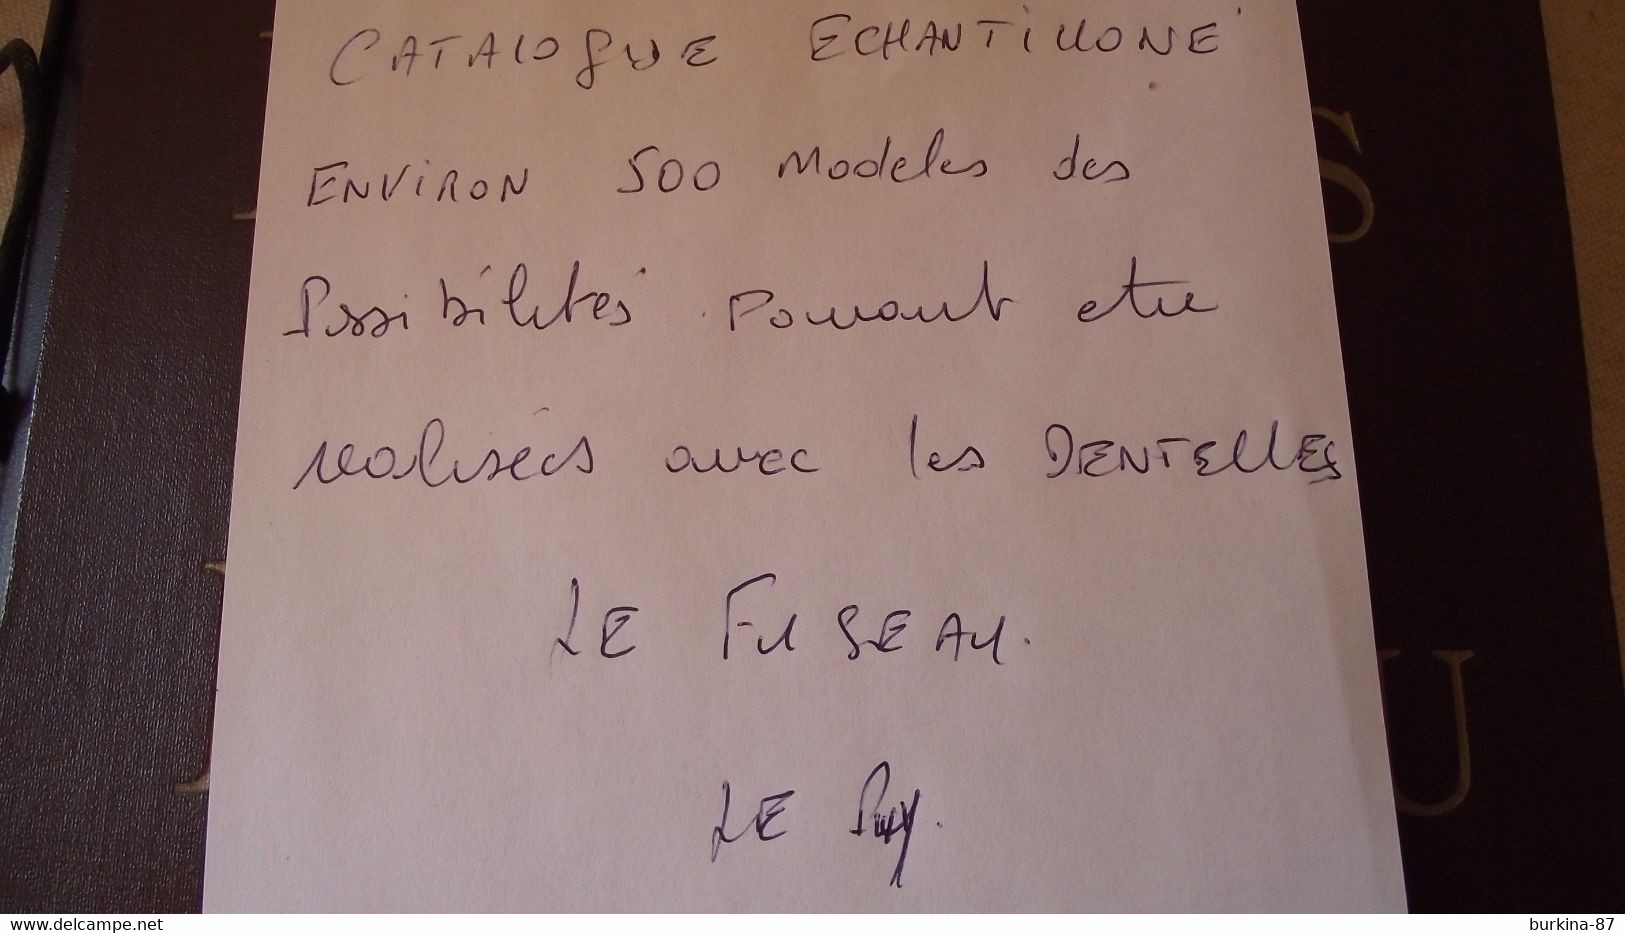 CATALOGUE ECHANTILLONÉ
ENVIRON 500 Modeles des
Possibilités Pouvant etre
realisées avec les DENTELLES
LE FUSEAU.
LE Puy.
S
U
www.delcampe.net
burkina-87